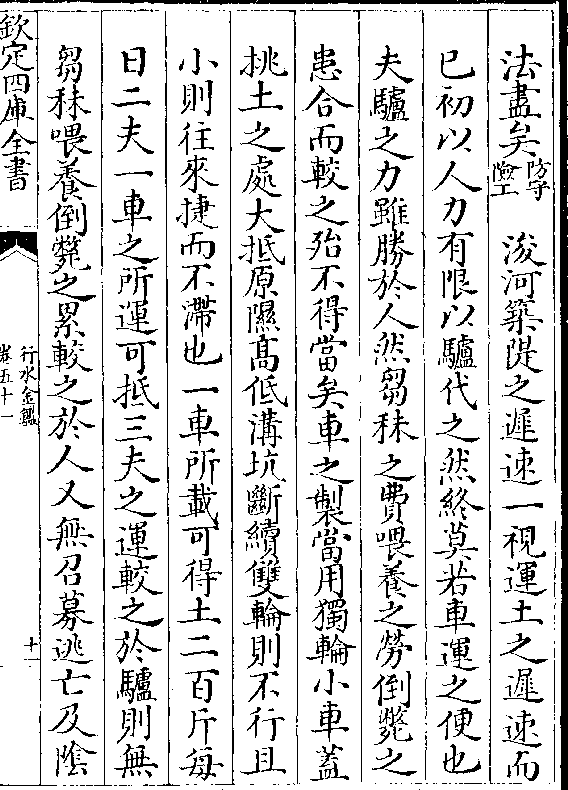 法盡矣防守險工 浚河築隄之遲速一視運土之遲速而
已初以人力有限以驢代之然終莫若車運之便也
夫驢之力雖勝於人然芻秣之費喂養之勞倒斃之
患合而較之殆不得當矣車之製當用獨輪小車蓋
挑土之處大抵原隰高低溝坑斷續雙輪則不行且
小則往來捷而不滯也一車所載可得土二百斤每
日二夫一車之所運可抵三夫之運較之於驢則無
芻秣喂養倒斃之累較之於人又無召募逃亡及陰
欽定四庫全書
行水金鑑
卷五十一
十